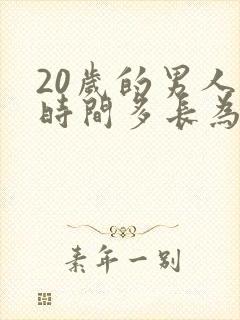 20歲的男人
時間多長為
素年一別